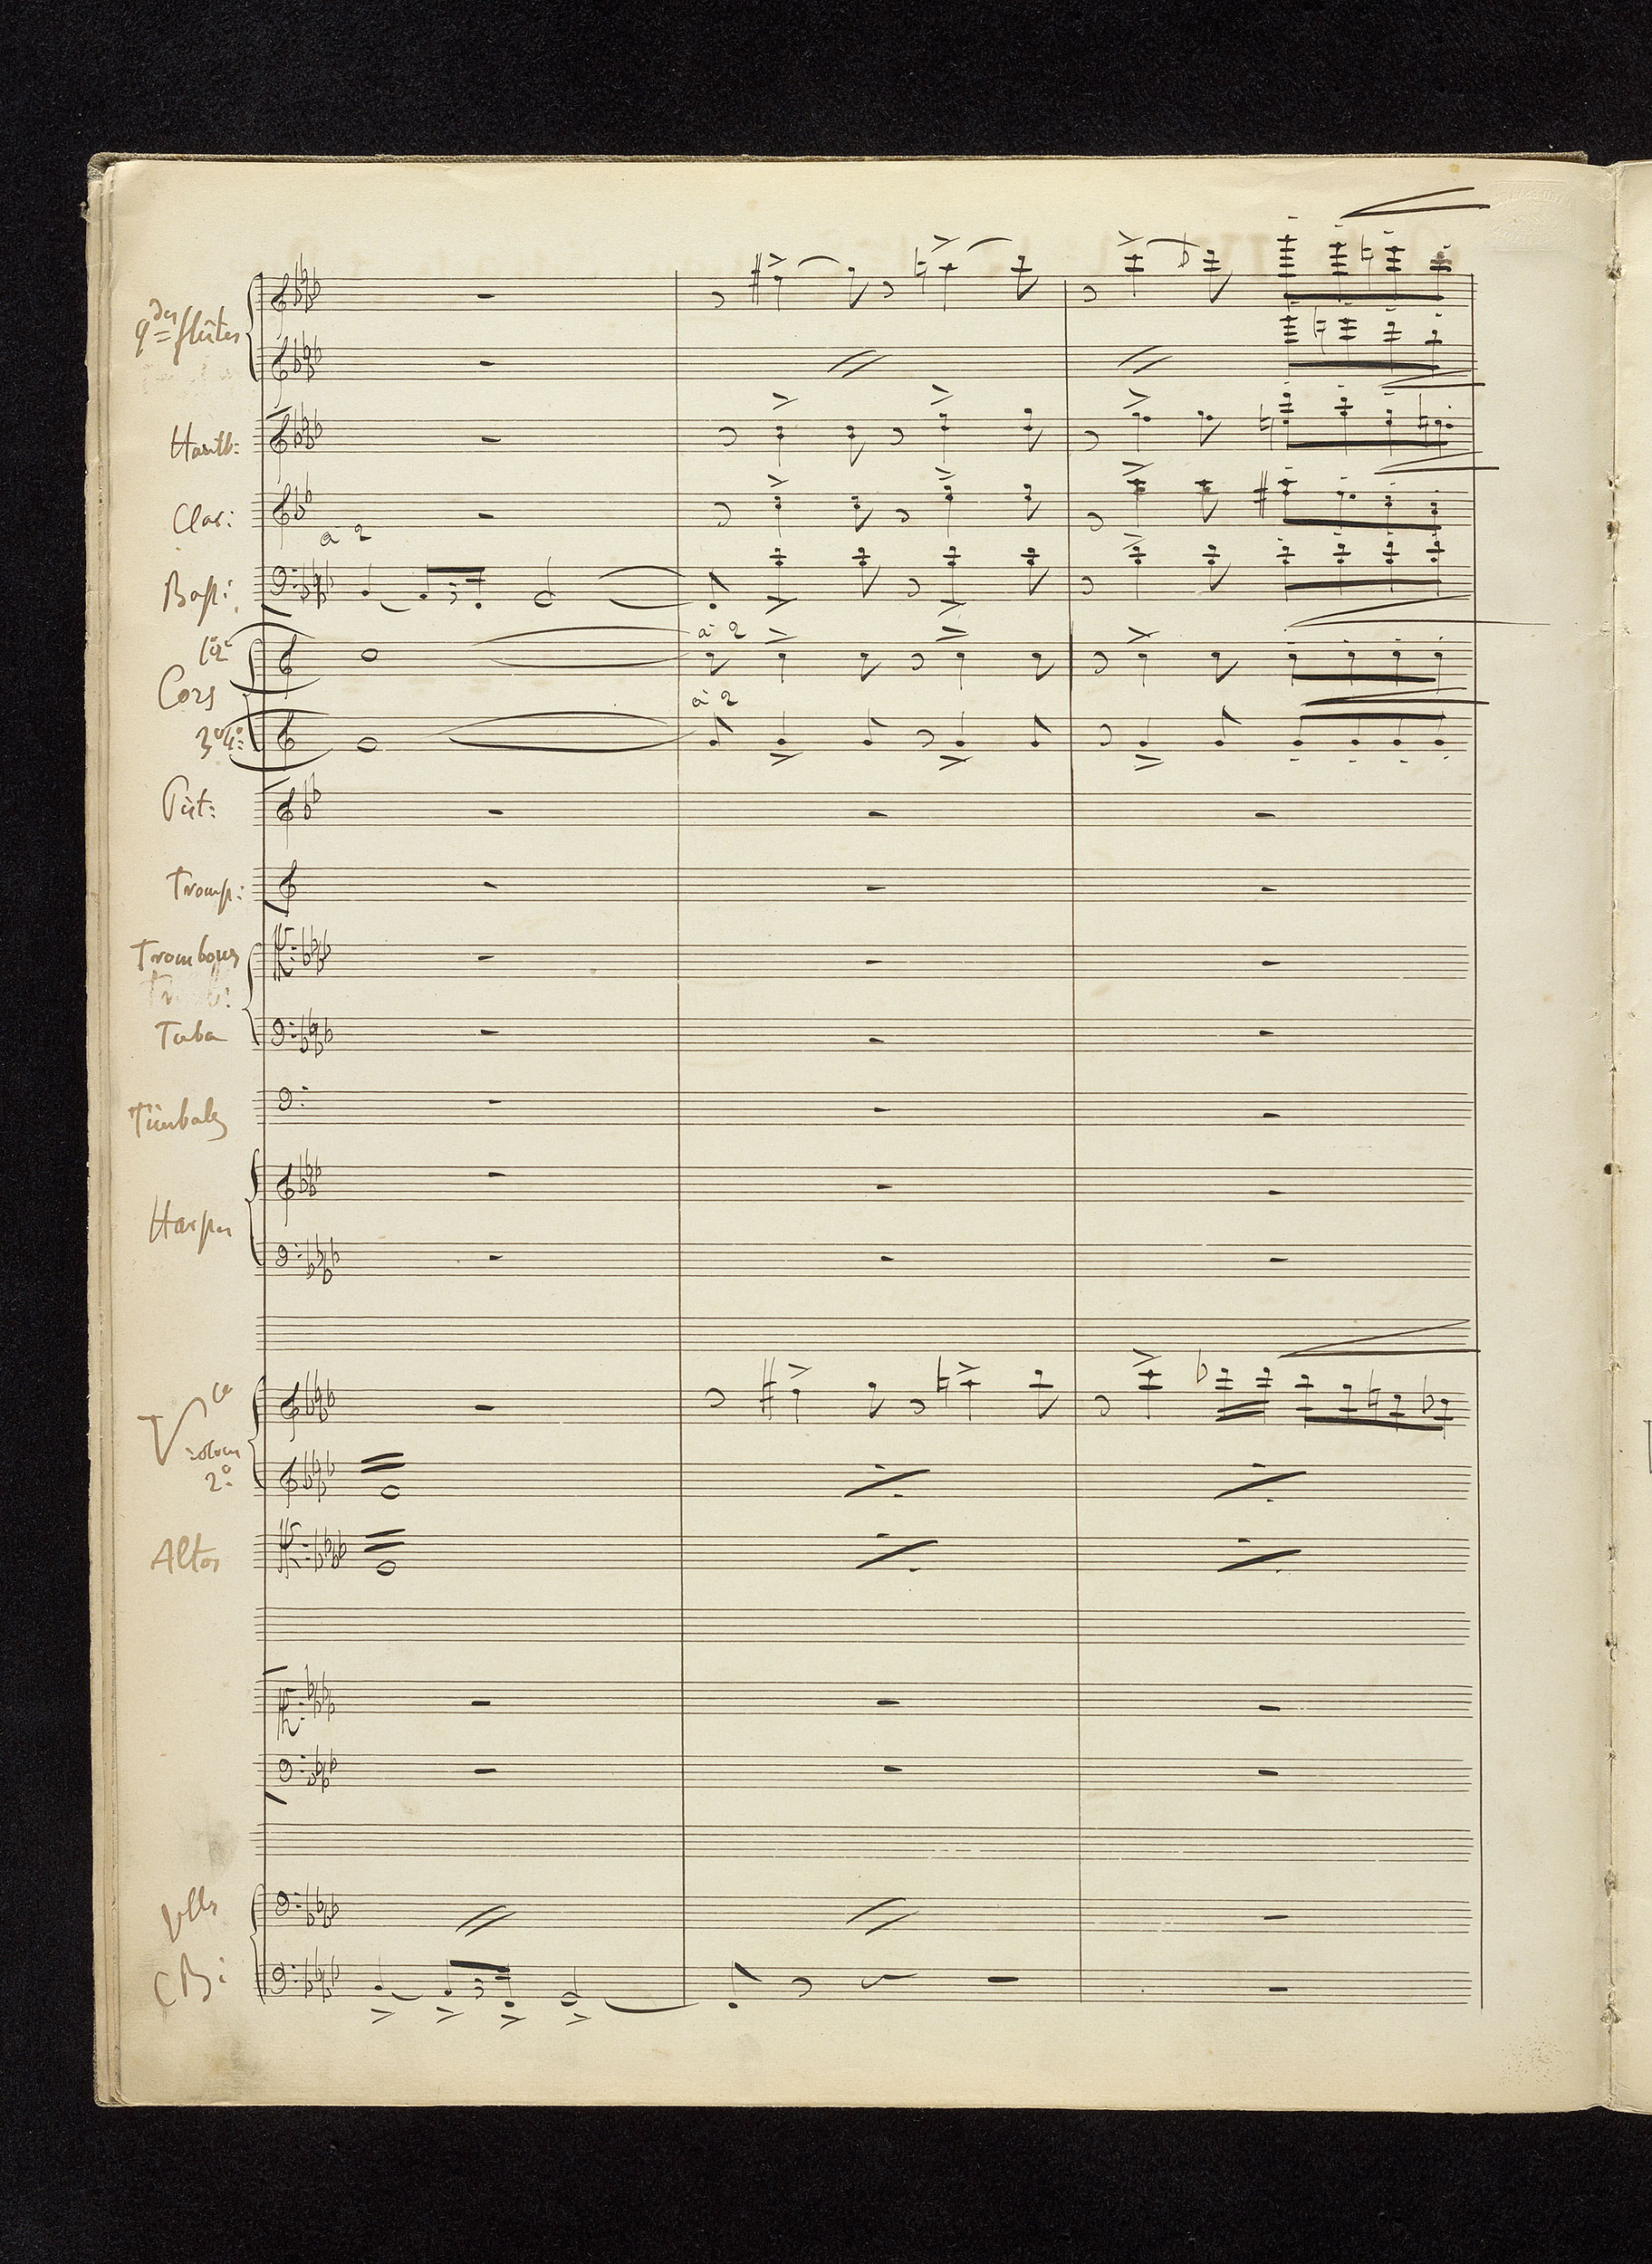 gdes flûtes
Hautb:
Clar:
à 2
Bass:
1º 2º
à 2
Cors
à 2
3º 4º
Pist:
Tromp:
Trombones
Tuba
Timbales
Harpes
1º
Violons
2º
Altos
Vlles
CB: